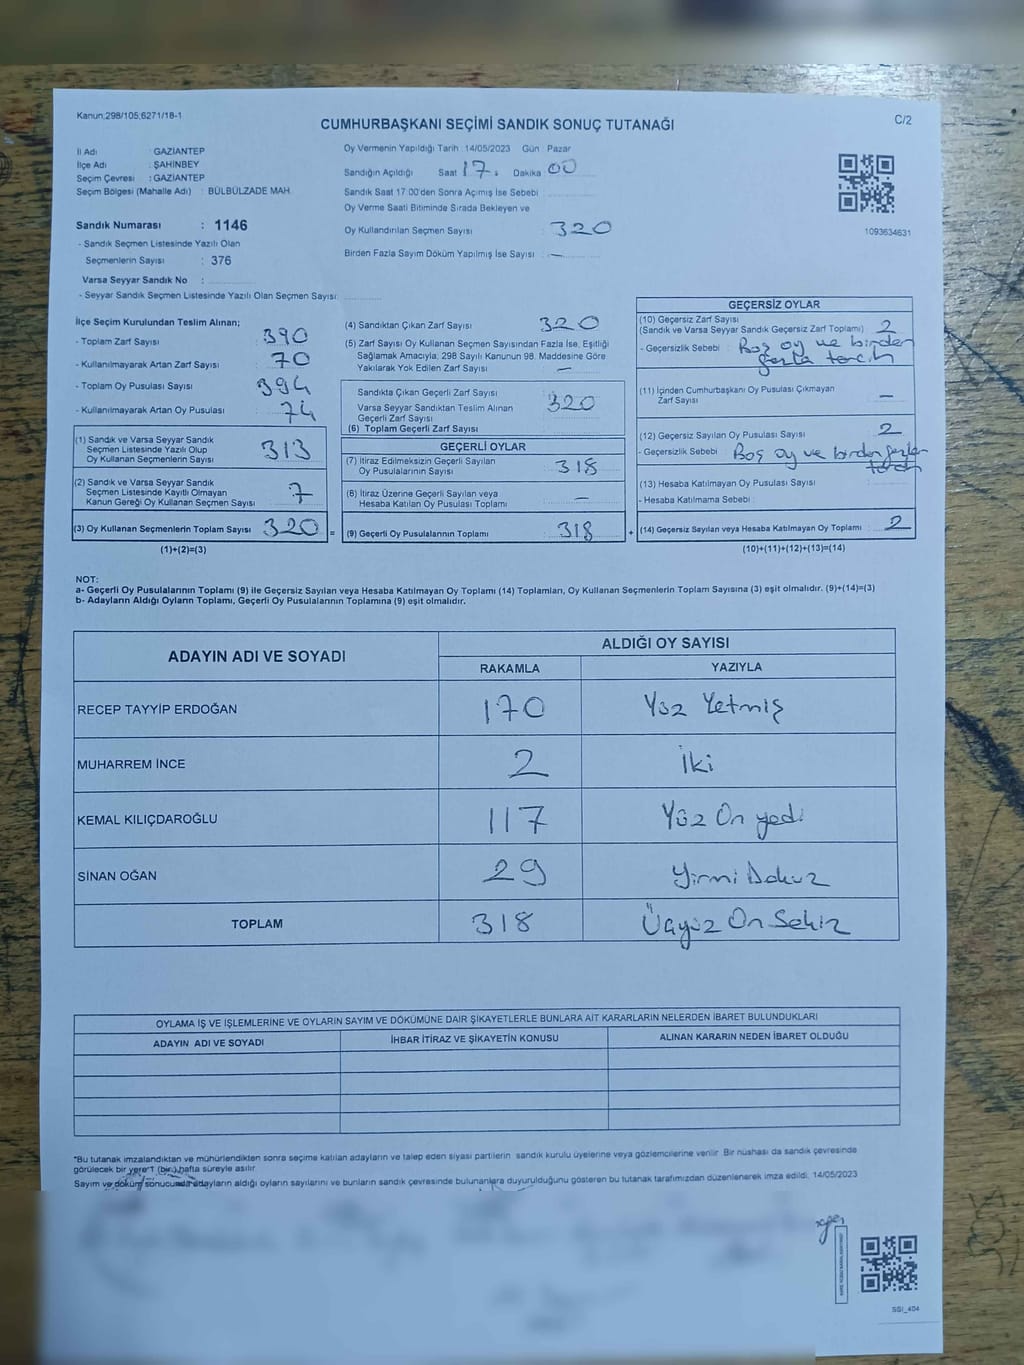 Kanun;298/105;6271/18-1
CUMHURBAŞKANI SEÇİMİ SANDIK SONUÇ TUTANAĞI
C/2
İl Adı : GAZİANTEP
İlçe Adı : ŞAHİNBEY
Seçim Çevresi : GAZİANTEP
Seçim Bölgesi (Mahalle Adı) : BÜLBÜLZADE MAH.
Sandık Numarası : 1146
- Sandık Seçmen Listesinde Yazılı Olan
Seçmenlerin Sayısı : 376
Varsa Seyyar Sandık No :
- Seyyar Sandık Seçmen Listesinde Yazılı Olan Seçmen Sayısı:
Oy Vermenin Yapıldığı Tarih :14/05/2023 Gün : Pazar
Sandığın Açıldığı Saat 17 : Dakika 00
Sandık Saat 17:00'den Sonra Açımış İse Sebebi :
Oy Verme Saati Bitiminde Sırada Bekleyen ve
Oy Kullandırılan Seçmen Sayısı : 320
Birden Fazla Sayım Döküm Yapılmış İse Sayısı : —
1093634631
İlçe Seçim Kurulundan Teslim Alınan;
- Toplam Zarf Sayısı : 390
- Kullanılmayarak Artan Zarf Sayısı : 70
- Toplam Oy Pusulası Sayısı : 394
- Kullanılmayarak Artan Oy Pusulası : 74
(1) Sandık ve Varsa Seyyar Sandık
Seçmen Listesinde Yazılı Olup
Oy Kullanan Seçmenlerin Sayısı : 313
(2) Sandık ve Varsa Seyyar Sandık
Seçmen Listesinde Kayıtlı Olmayan
Kanun Gereği Oy Kullanan Seçmen Sayısı : 7
(3) Oy Kullanan Seçmenlerin Toplam Sayısı : 320 =
(1)+(2)=(3)
(4) Sandıktan Çıkan Zarf Sayısı : 320
(5) Zarf Sayısı Oy Kullanan Seçmen Sayısından Fazla İse, Eşitliği
Sağlamak Amacıyla, 298 Sayılı Kanunun 98. Maddesine Göre
Yakılarak Yok Edilen Zarf Sayısı : —
Sandıkta Çıkan Geçerli Zarf Sayısı
Varsa Seyyar Sandıktan Teslim Alınan : 320
Geçerli Zarf Sayısı
(6) Toplam Geçerli Zarf Sayısı
GEÇERLİ OYLAR
(7) İtiraz Edilmeksizin Geçerli Sayılan
Oy Pusulalarının Sayısı : 318
(8) İtiraz Üzerine Geçerli Sayılan veya
Hesaba Katılan Oy Pusulası Toplamı : —
(9) Geçerli Oy Pusulalarının Toplamı : 318 +
GEÇERSİZ OYLAR
(10) Geçersiz Zarf Sayısı
(Sandık ve Varsa Seyyar Sandık Geçersiz Zarf Toplamı) : 2
- Geçersizlik Sebebi : Boş oy ve birden
fazla tercih
(11) İçinden Cumhurbaşkanı Oy Pusulası Çıkmayan
Zarf Sayısı : —
(12) Geçersiz Sayılan Oy Pusulası Sayısı : 2
- Geçersizlik Sebebi : Boş oy ve birden fazla
(13) Hesaba Katılmayan Oy Pusulası Sayısı :
- Hesaba Katılmama Sebebi :
(14) Geçersiz Sayılan veya Hesaba Katılmayan Oy Toplamı : 2
(10)+(11)+(12)+(13)=(14)
NOT:
a- Geçerli Oy Pusulalarının Toplamı (9) ile Geçersiz Sayılan veya Hesaba Katılmayan Oy Toplamı (14) Toplamları, Oy Kullanan Seçmenlerin Toplam Sayısına (3) eşit olmalıdır. (9)+(14)=(3)
b- Adayların Aldığı Oyların Toplamı, Geçerli Oy Pusulalarının Toplamına (9) eşit olmalıdır.
ADAYIN ADI VE SOYADI
ALDIĞI OY SAYISI
RAKAMLA YAZIYLA
RECEP TAYYİP ERDOĞAN 170 Yüz Yetmiş
MUHARREM İNCE 2 İki
KEMAL KILIÇDAROĞLU 117 Yüz On yedi
SİNAN OĞAN 29 Yirmi Dokuz
TOPLAM 318 Üçyüz On Sekiz
OYLAMA İŞ VE İŞLEMLERİNE VE OYLARIN SAYIM VE DÖKÜMÜNE DAİR ŞİKAYETLERLE BUNLARA AİT KARARLARIN NELERDEN İBARET BULUNDUKLARI
ADAYIN ADI VE SOYADI İHBAR İTİRAZ VE ŞİKAYETİN KONUSU ALINAN KARARIN NEDEN İBARET OLDUĞU
*Bu tutanak imzalandıktan ve mühürlendikten sonra seçime katılan adayların ve talep eden siyasi partilerin sandık kurulu üyelerine veya gözlemcilerine verilir. Bir nüshası da sandık çevresinde
görülecek bir yere 1 (bir) hafta süreyle asılır.
Sayım ve döküm sonucunda adayların aldığı oyların sayılarını ve bunların sandık çevresinde bulunanlara duyurulduğunu gösteren bu tutanak tarafımızdan düzenlenerek imza edildi. 14/05/2023
SSI_404